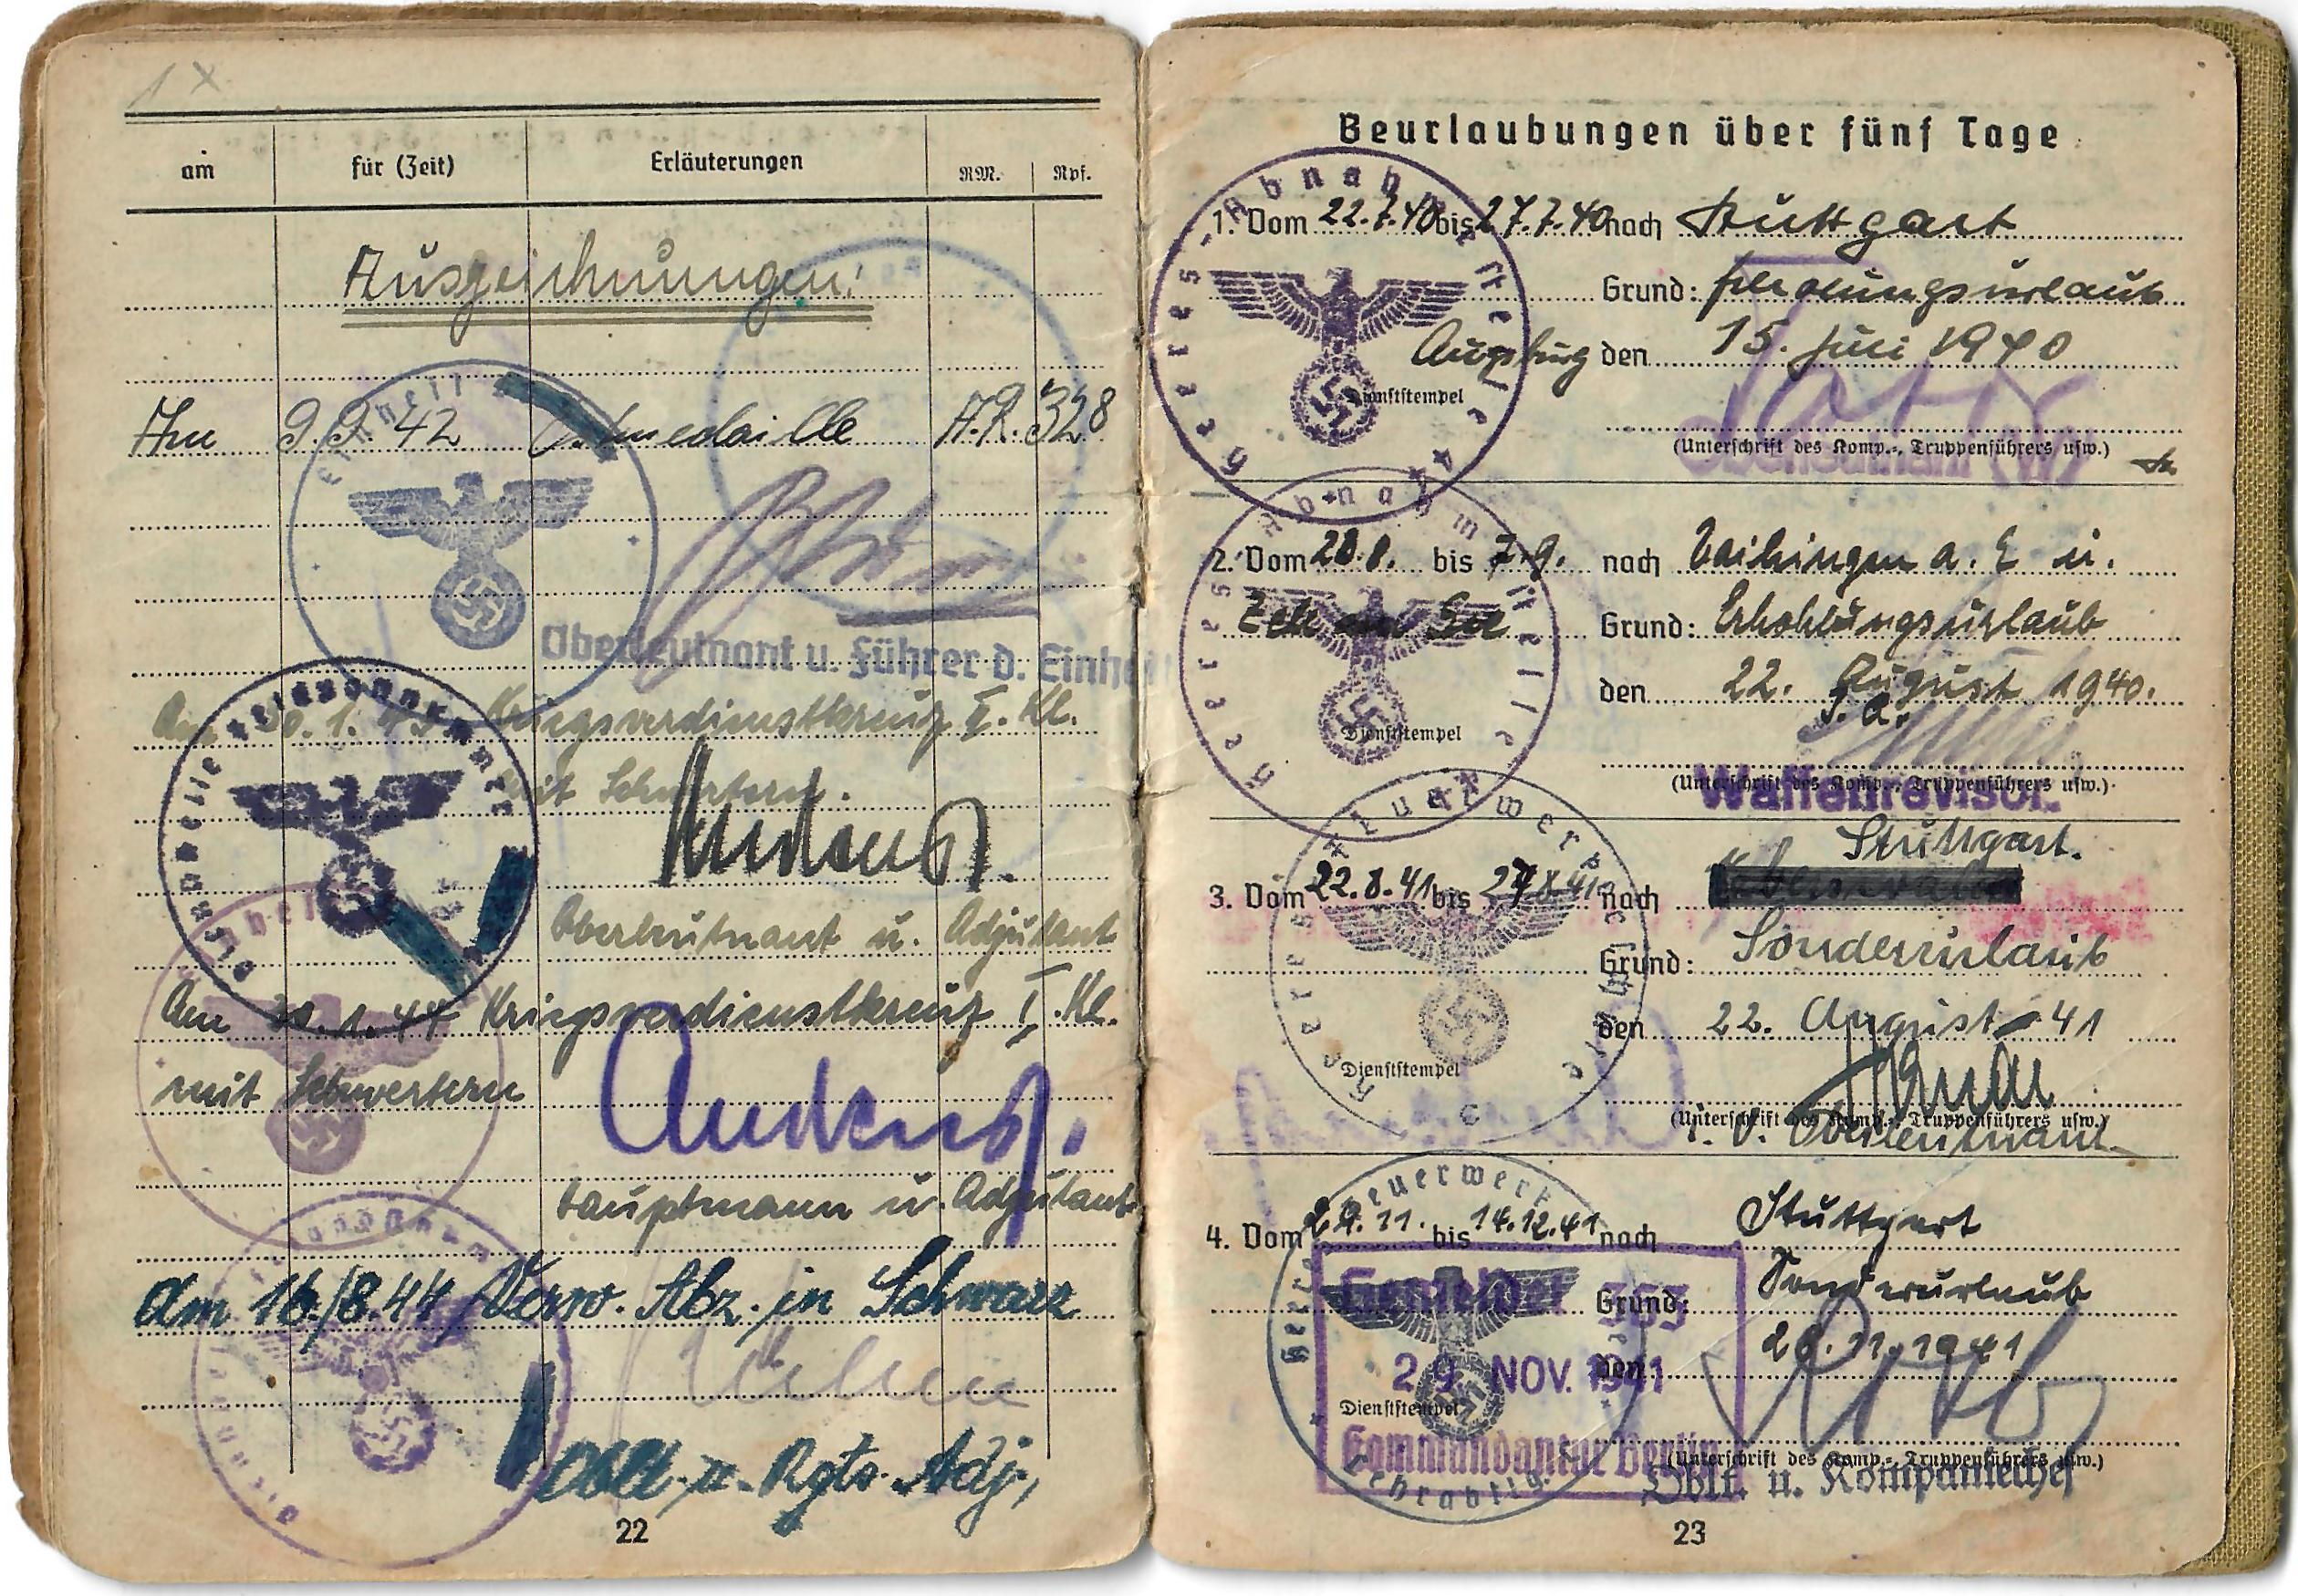 1 x
am für (Zeit) Erläuterungen RM. Rpf.
Auszeichnungen:
Am 9.9.42 Ostmedaille A.R. 328
Oberleutnant u. Führer d. Einheit
Am 30.1.43 Kriegsverdienstkreuz II. Kl.
mit Schwertern.
Oberleutnant u. Adjutant
Am 30.1.44 Kriegsverdienstkreuz I. Kl.
mit Schwertern
Hauptmann u. Adjutant
Am 16/8.44 Verw. Abz. in Schwarz
Oblt. u. Rgts. Adj.
22
Beurlaubungen über fünf Tage
1. Vom 22.7.40 bis 27.7.40 nach Stuttgart
Grund: Erholungsurlaub
Augsburg den 15. Juli 1940
Dienststempel
(Unterschrift des Komp.-, Truppenführers usw.)
Oberleutnant (W)
Heeres-Abnahmestelle
2. Vom 28.8. bis 7.9. nach Vaihingen a. E. u.
Zell am See Grund: Erhohlungsurlaub
den 22. August 1940.
J. A.
Dienststempel
(Unterschrift des Komp.-, Truppenführers usw.)
Waffenrevisor.
Heeres-Abnahmestelle
Stuttgart.
3. Vom 22.8.41 bis 27.8.41 nach
Grund: Sonderurlaub
den 22. August 41
Dienststempel
(Unterschrift des Komp.-, Truppenführers usw.)
J. V. Oberleutnant
4. Vom 29.11. bis 14.12.41 nach Stuttgart
Grund: Sonderurlaub
den 28.11.1941
29. NOV. 1941
Dienststempel
Kommandantur Berlin
(Unterschrift des Komp.-, Truppenführers usw.)
Oblt. u. Kompaniechef
23